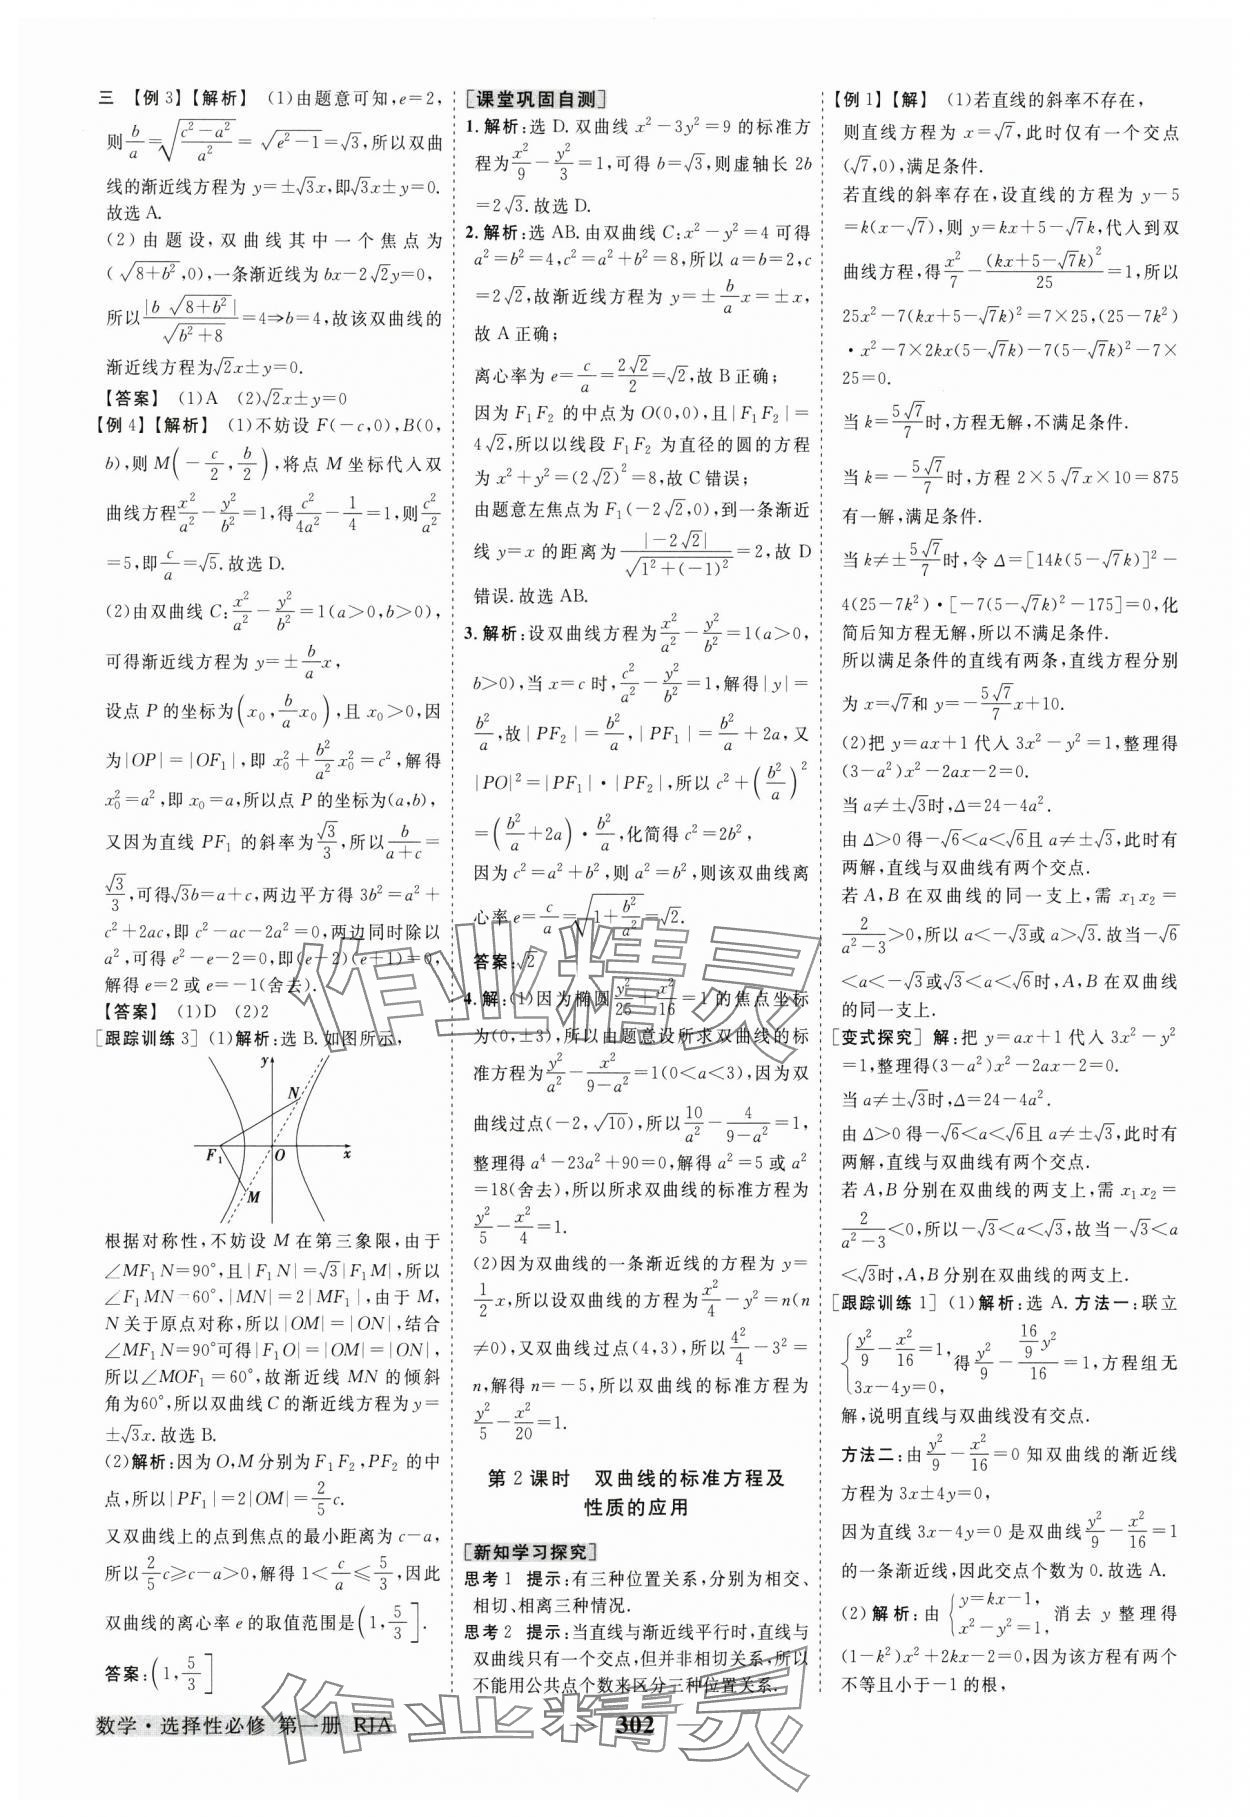 三 【例3】【解析】 (1)由题意可知,e=2,
则b/a=√((c²-a²)/a²)=√(e²-1)=√3,所以双曲
线的渐近线方程为 y=±√3x,即√3x±y=0.
故选 A.
(2)由题设,双曲线其中一个焦点为
(√(8+b²),0),一条渐近线为 bx-2√2y=0,
所以|b√(8+b²)|/√(b²+8)=4⇒b=4,故该双曲线的
渐近线方程为√2x±y=0.
【答案】 (1)A (2)√2x±y=0
【例4】【解析】 (1)不妨设 F(-c,0),B(0,
b),则 M(-c/2,b/2),将点 M 坐标代入双
曲线方程x²/a²-y²/b²=1,得c²/4a²-1/4=1,则c²/a²
=5,即c/a=√5.故选 D.
(2)由双曲线 C:x²/a²-y²/b²=1(a>0,b>0),
可得渐近线方程为 y=±b/a x,
设点 P 的坐标为(x₀,b/a x₀),且 x₀>0,因
为|OP|=|OF₁|,即 x₀²+b²/a² x₀²=c²,解得
x₀²=a²,即 x₀=a,所以点 P 的坐标为(a,b),
又因为直线 PF₁ 的斜率为√3/3,所以b/(a+c)=
√3/3,可得√3b=a+c,两边平方得 3b²=a²+
c²+2ac,即 c²-ac-2a²=0,两边同时除以
a²,可得 e²-e-2=0,即(e-2)(e+1)=0,
解得 e=2 或 e=-1(舍去).
【答案】 (1)D (2)2
[跟踪训练3] (1)解析:选 B.如图所示,
y
N
F₁ O x
M
根据对称性,不妨设 M 在第三象限,由于
∠MF₁N=90°,且|F₁N|=√3|F₁M|,所以
∠F₁MN=60°,|MN|=2|MF₁|,由于 M,
N 关于原点对称,所以|OM|=|ON|,结合
∠MF₁N=90°可得|F₁O|=|OM|=|ON|,
所以∠MOF₁=60°,故渐近线 MN 的倾斜
角为60°,所以双曲线 C 的渐近线方程为 y=
±√3x.故选 B.
(2)解析:因为 O,M 分别为 F₁F₂,PF₂ 的中
点,所以|PF₁|=2|OM|=2/5 c.
又双曲线上的点到焦点的最小距离为 c-a,
所以2/5 c≥c-a>0,解得 1<c/a≤5/3,因此
双曲线的离心率 e 的取值范围是(1,5/3].
答案:(1,5/3]
[课堂巩固自测]
1.解析:选 D.双曲线 x²-3y²=9 的标准方
程为x²/9-y²/3=1,可得 b=√3,则虚轴长 2b
=2√3.故选 D.
2.解析:选 AB.由双曲线 C:x²-y²=4 可得
a²=b²=4,c²=a²+b²=8,所以 a=b=2,c
=2√2,故渐近线方程为 y=±b/a x=±x,
故 A 正确;
离心率为 e=c/a=2√2/2=√2,故 B 正确;
因为 F₁F₂ 的中点为 O(0,0),且|F₁F₂|=
4√2,所以以线段 F₁F₂ 为直径的圆的方程
为 x²+y²=(2√2)²=8,故 C 错误;
由题意左焦点为 F₁(-2√2,0),到一条渐近
线 y=x 的距离为|-2√2|/√(1²+(-1)²)=2,故 D
错误.故选 AB.
3.解析:设双曲线方程为x²/a²-y²/b²=1(a>0,
b>0),当 x=c 时,c²/a²-y²/b²=1,解得|y|=
b²/a,故|PF₂|=b²/a,|PF₁|=b²/a+2a,又
|PO|²=|PF₁|·|PF₂|,所以 c²+(b²/a)²
=(b²/a+2a)·b²/a,化简得 c²=2b²,
因为 c²=a²+b²,则 a²=b²,则该双曲线离
心率 e=c/a=√(1+b²/a²)=√2.
答案:√2
4.解:(1)因为椭圆y²/25+x²/16=1 的焦点坐标
为(0,±3),所以由题意设所求双曲线的标
准方程为y²/a²-x²/(9-a²)=1(0<a<3),因为双
曲线过点(-2,√10),所以10/a²-4/(9-a²)=1,
整理得 a⁴-23a²+90=0,解得 a²=5 或 a²
=18(舍去),所以所求双曲线的标准方程为
y²/5-x²/4=1.
(2)因为双曲线的一条渐近线的方程为 y=
1/2 x,所以设双曲线的方程为x²/4-y²=n(n
≠0),又双曲线过点(4,3),所以4²/4-3²=
n,解得 n=-5,所以双曲线的标准方程为
y²/5-x²/20=1.
第2课时 双曲线的标准方程及
性质的应用
[新知学习探究]
思考1 提示:有三种位置关系,分别为相交、
相切、相离三种情况.
思考2 提示:当直线与渐近线平行时,直线与
双曲线只有一个交点,但并非相切关系,所以
不能用公共点个数来区分三种位置关系.
【例1】【解】 (1)若直线的斜率不存在,
则直线方程为 x=√7,此时仅有一个交点
(√7,0),满足条件.
若直线的斜率存在,设直线的方程为 y-5
=k(x-√7),则 y=kx+5-√7k,代入到双
曲线方程,得x²/7-(kx+5-√7k)²/25=1,所以
25x²-7(kx+5-√7k)²=7×25,(25-7k²)
·x²-7×2kx(5-√7k)-7(5-√7k)²-7×
25=0.
当 k=5√7/7时,方程无解,不满足条件.
当 k=-5√7/7时,方程 2×5√7x×10=875
有一解,满足条件.
当 k≠±5√7/7时,令 Δ=[14k(5-√7k)]²-
4(25-7k²)·[-7(5-√7k)²-175]=0,化
简后知方程无解,所以不满足条件.
所以满足条件的直线有两条,直线方程分别
为 x=√7和 y=-5√7/7 x+10.
(2)把 y=ax+1 代入 3x²-y²=1,整理得
(3-a²)x²-2ax-2=0.
当 a≠±√3时,Δ=24-4a².
由 Δ>0 得-√6<a<√6且 a≠±√3,此时有
两解,直线与双曲线有两个交点.
若 A,B 在双曲线的同一支上,需 x₁x₂=
2/(a²-3)>0,所以 a<-√3或 a>√3.故当-√6
<a<-√3或√3<a<√6时,A,B 在双曲线
的同一支上.
[变式探究] 解:把 y=ax+1 代入 3x²-y²
=1,整理得(3-a²)x²-2ax-2=0.
当 a≠±√3时,Δ=24-4a².
由 Δ>0 得-√6<a<√6且 a≠±√3,此时有
两解,直线与双曲线有两个交点.
若 A,B 分别在双曲线的两支上,需 x₁x₂=
2/(a²-3)<0,所以-√3<a<√3,故当-√3<a
<√3时,A,B 分别在双曲线的两支上.
[跟踪训练1] (1)解析:选 A.方法一:联立
{y²/9-x²/16=1, 3x-4y=0, 得y²/9-(16/9 y²)/16=1,方程组无
解,说明直线与双曲线没有交点.
方法二:由y²/9-x²/16=0 知双曲线的渐近线
方程为 3x±4y=0,
因为直线 3x-4y=0 是双曲线y²/9-x²/16=1
的一条渐近线,因此交点个数为 0.故选 A.
(2)解析:由{y=kx-1, x²-y²=1, 消去 y 整理得
(1-k²)x²+2kx-2=0,因为该方程有两个
不等且小于-1的根,
数学·选择性必修 第一册 RJA
302
作业精灵
作业精灵